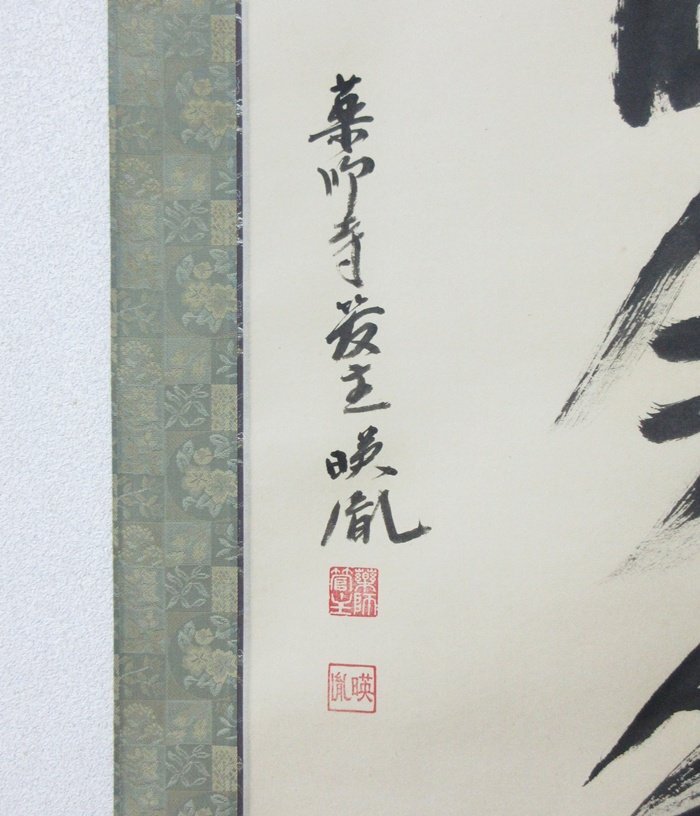 薬師寺管主 暎胤
薬師管主
暎胤